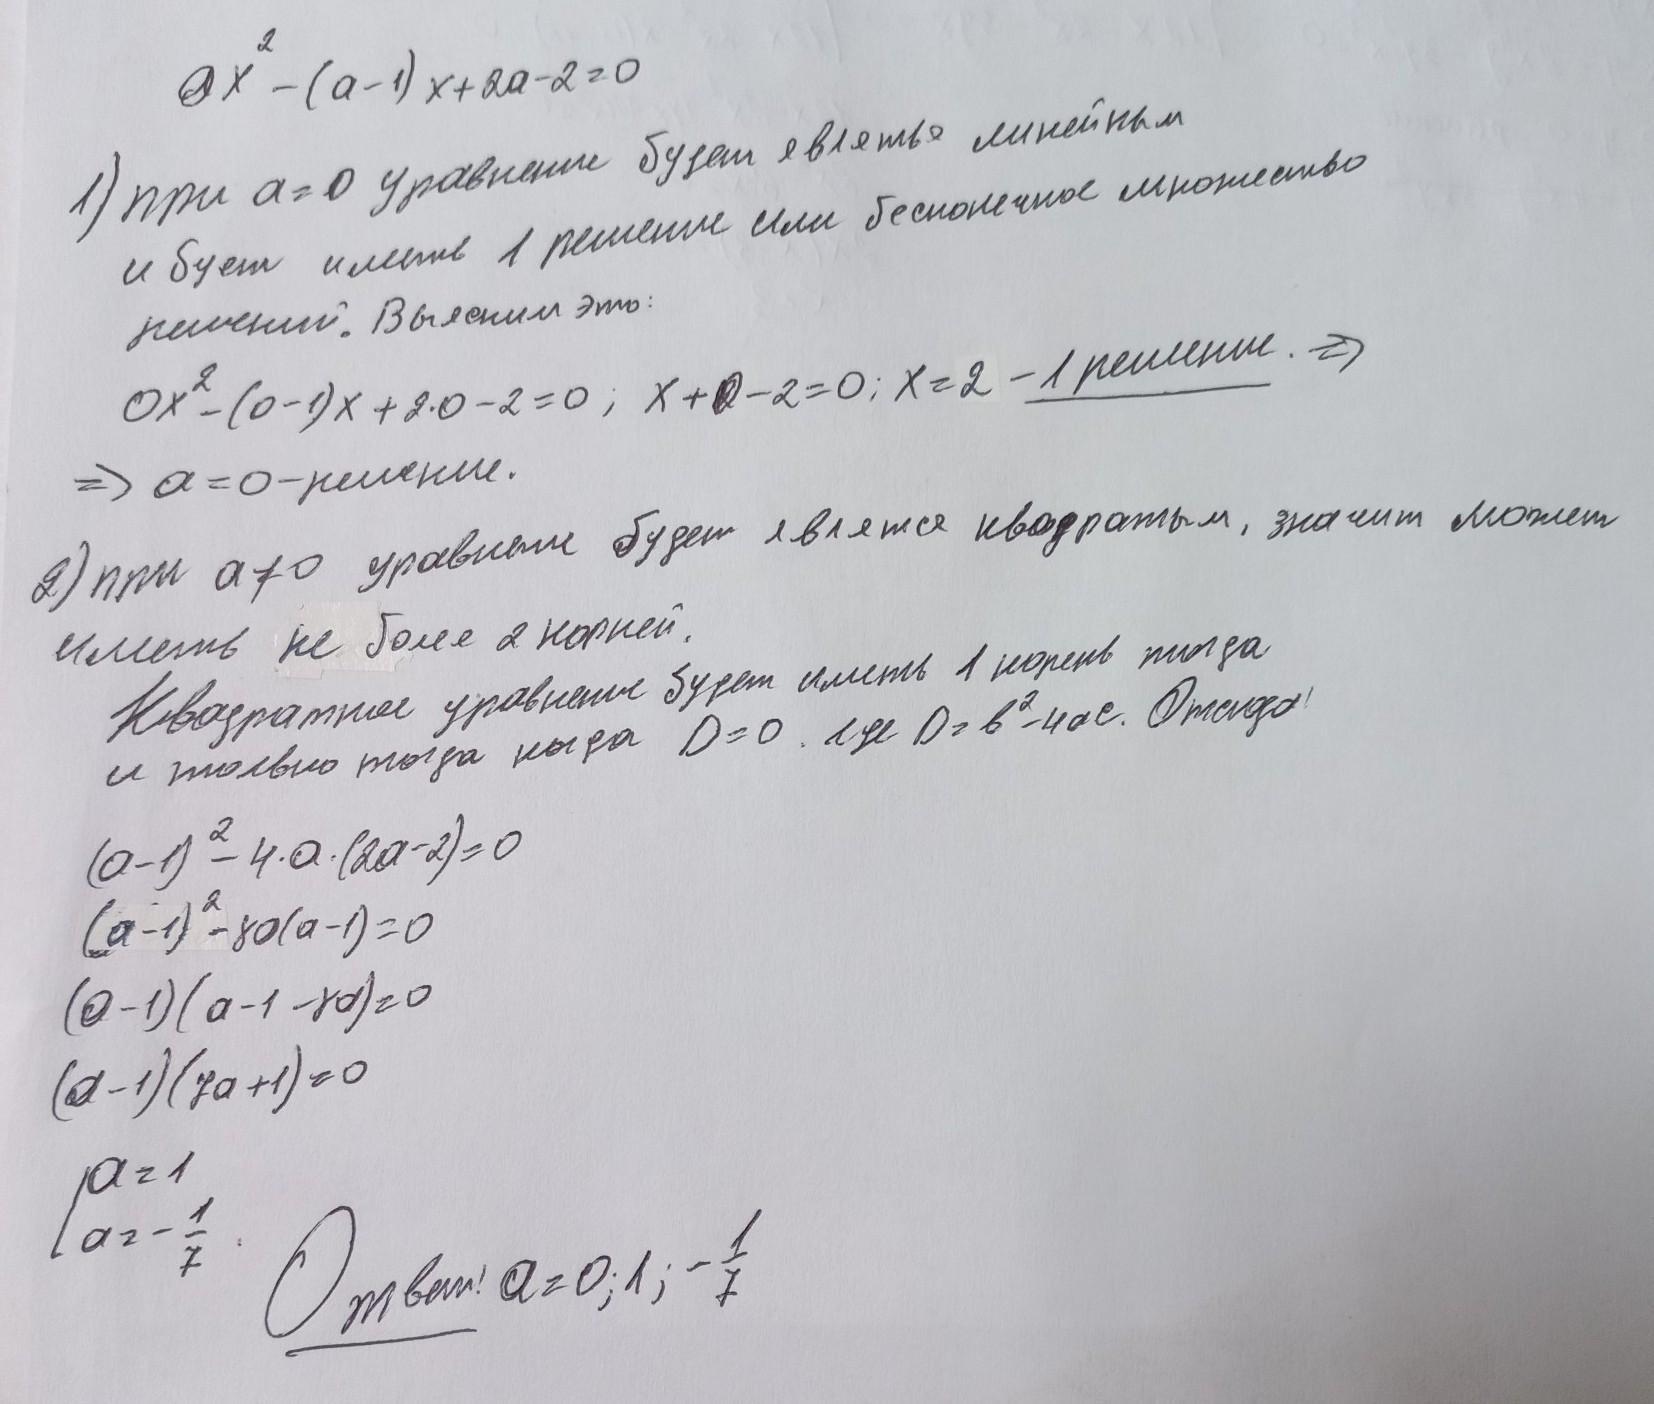 ax² - (a-1)x + 2a - 2 = 0
1) при a=0 уравнение будет являться линейным
и будет иметь 1 решение или бесконечное множество
решений. Выясним это:
0x² - (0-1)x + 2·0 - 2 = 0; x + 0 - 2 = 0; x = 2 - 1 решение. ⇒
⇒ a = 0 - решение.
2) при a≠0 уравнение будет является квадратым, значит может
иметь не более 2 корней.
Квадратное уравнение будет иметь 1 корень тогда
и только тогда когда D=0. где D= b² - 4ac. Отсюда:
(a-1)² - 4·a·(2a-2) = 0
(a-1)² - 8a(a-1) = 0
(a-1)(a-1-8a) = 0
(a-1)(7a+1) = 0
[a = 1
[a = -1/7.
Ответ: a = 0; 1; -1/7